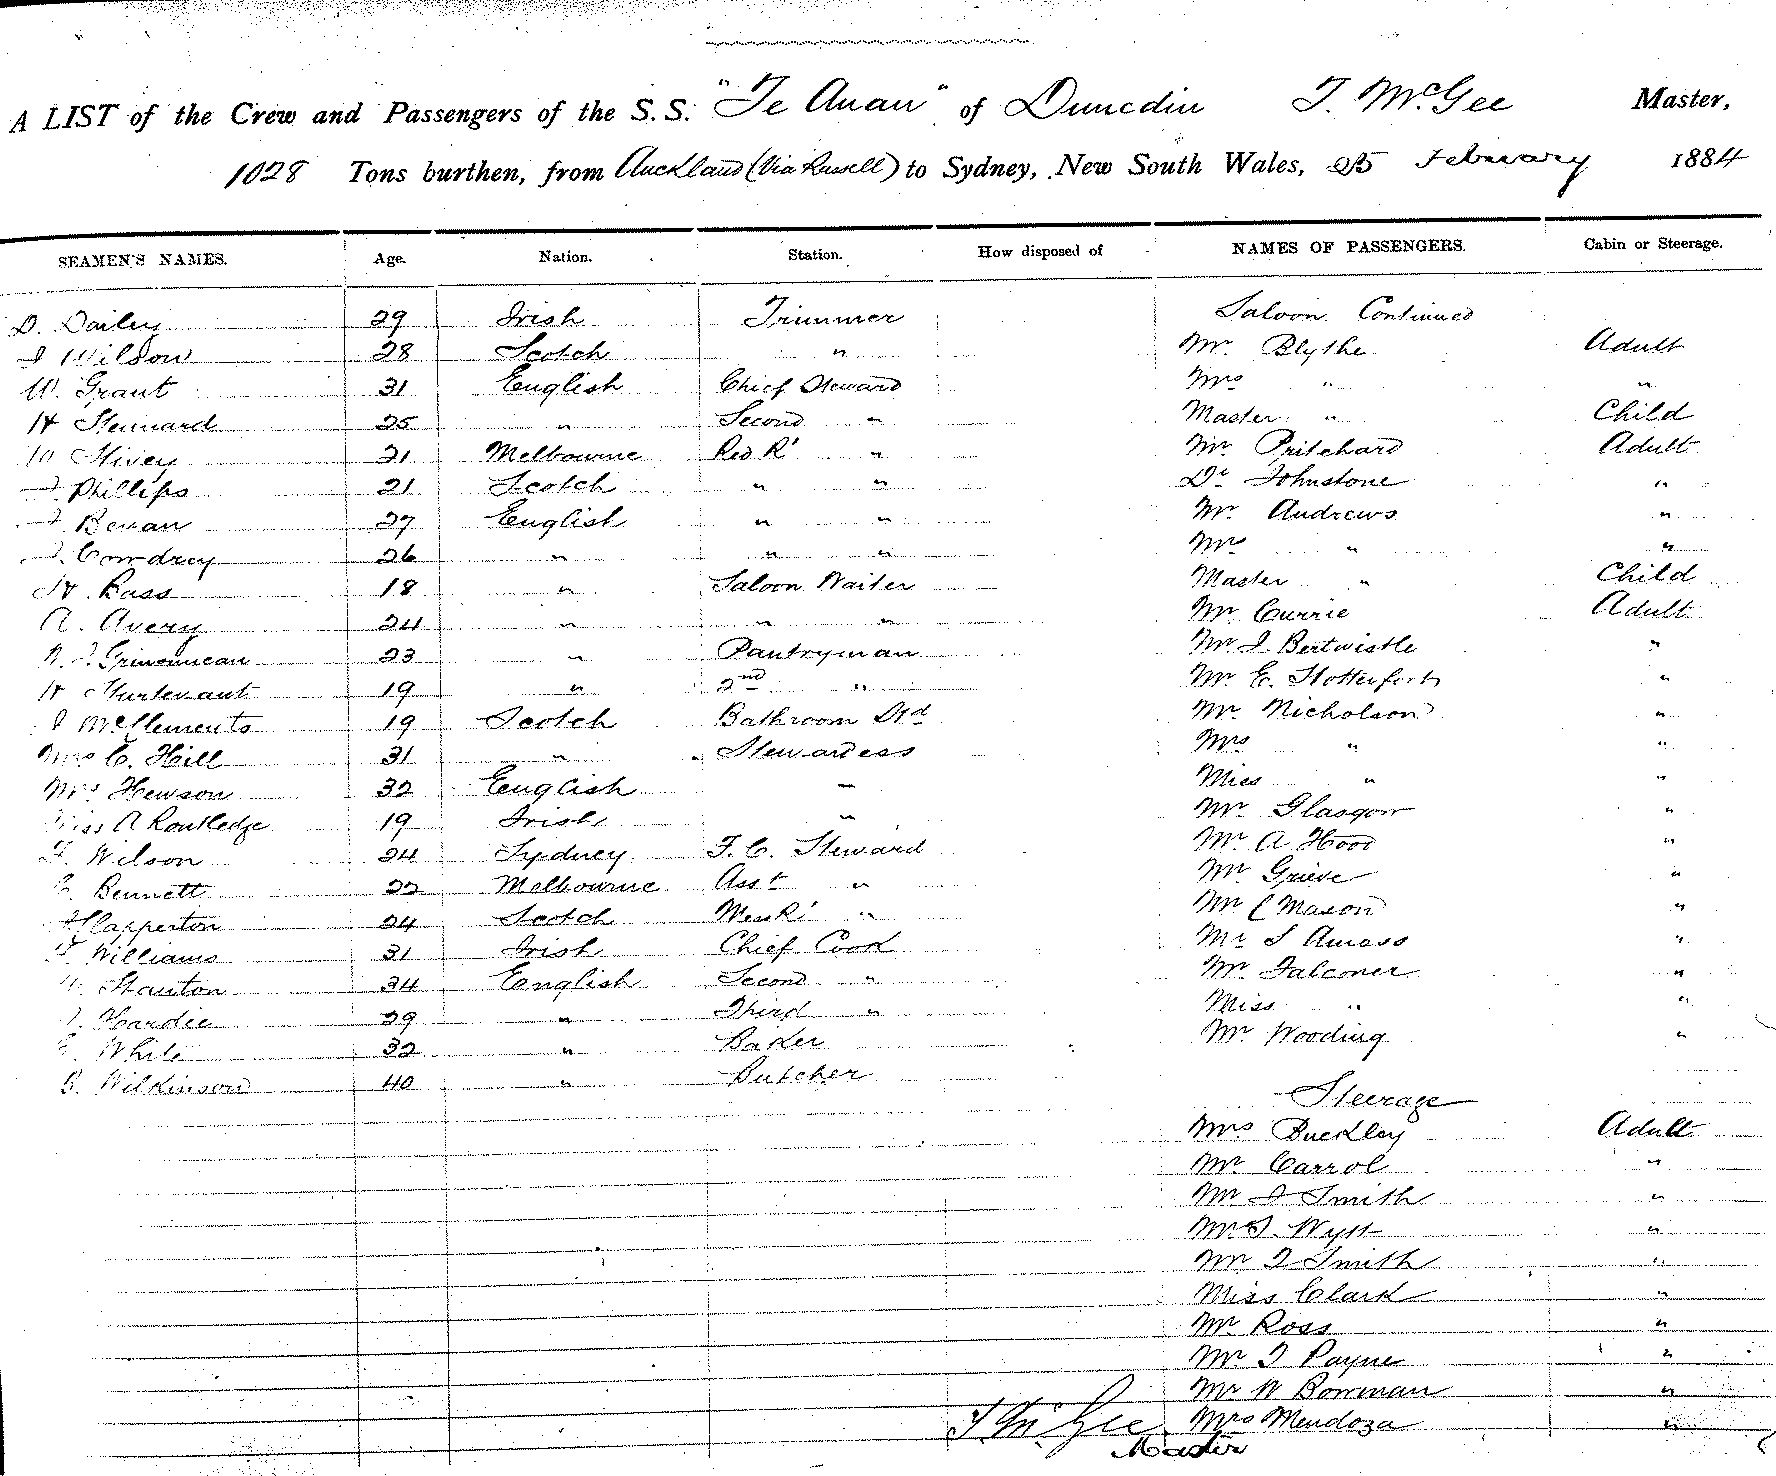 A LIST of the Crew and Passengers of the S.S. "Te Anau" of Dunedin T. McGee Master,
1028 Tons burthen, from Auckland (Via Russell) to Sydney, New South Wales, 25 February 1884
SEAMEN'S NAMES. Age. Nation. Station. How disposed of NAMES OF PASSENGERS. Cabin or Steerage.
D. Dailey 29 Irish Trimmer Saloon Continued
J Wilson 28 Scotch " Mr Blythe Adult
W. Grant 31 English Chief Steward Mrs " "
H Stennard 25 " Second " Master " Child
21 Melbourne " Mr Pritchard Adult
J Phillips 21 Scotch " " Dr Johnstone "
J. Bevan 27 English " " Mr Andrews "
J. Cowdrey 26 " " " Mrs " "
H. Bass 18 " Saloon Waiter Master " Child
A. Avery 24 " " " Mr Currie Adult
23 " Pantryman Mr J Bertwistle "
H Sturtevant 19 " 2nd " Mr E.
J McClements 19 Scotch Bathroom Std Mr Nicholson "
Mrs C. Hill 31 " Stewardess Mrs " "
Mrs Hewson 32 English " Miss " "
Miss A Routledge 19 Irish " Mr Glasgow "
F. Wilson 24 Sydney F.C. Steward Mr A Hood "
C. Bennett 22 Melbourne Asst " Mr Grieve "
H Capperton 24 Scotch " Mr C Mason "
Williams 31 Irish Chief Cook Mr S Amass "
Stanton 34 English Second " Mr Falconer "
J. Hardie 29 " Third " Miss " "
E. White 32 " Baker Mr Wooding "
B. Wilkinson 40 " Butcher
Steerage
Mrs Buckley Adult
Mr Carrol "
Mr J Smith "
"
Mr T Smith "
Miss Clark "
Mr Ross "
Mr T Payne "
Mr W Bowman "
Mrs Mendoza "
T McGee
Master